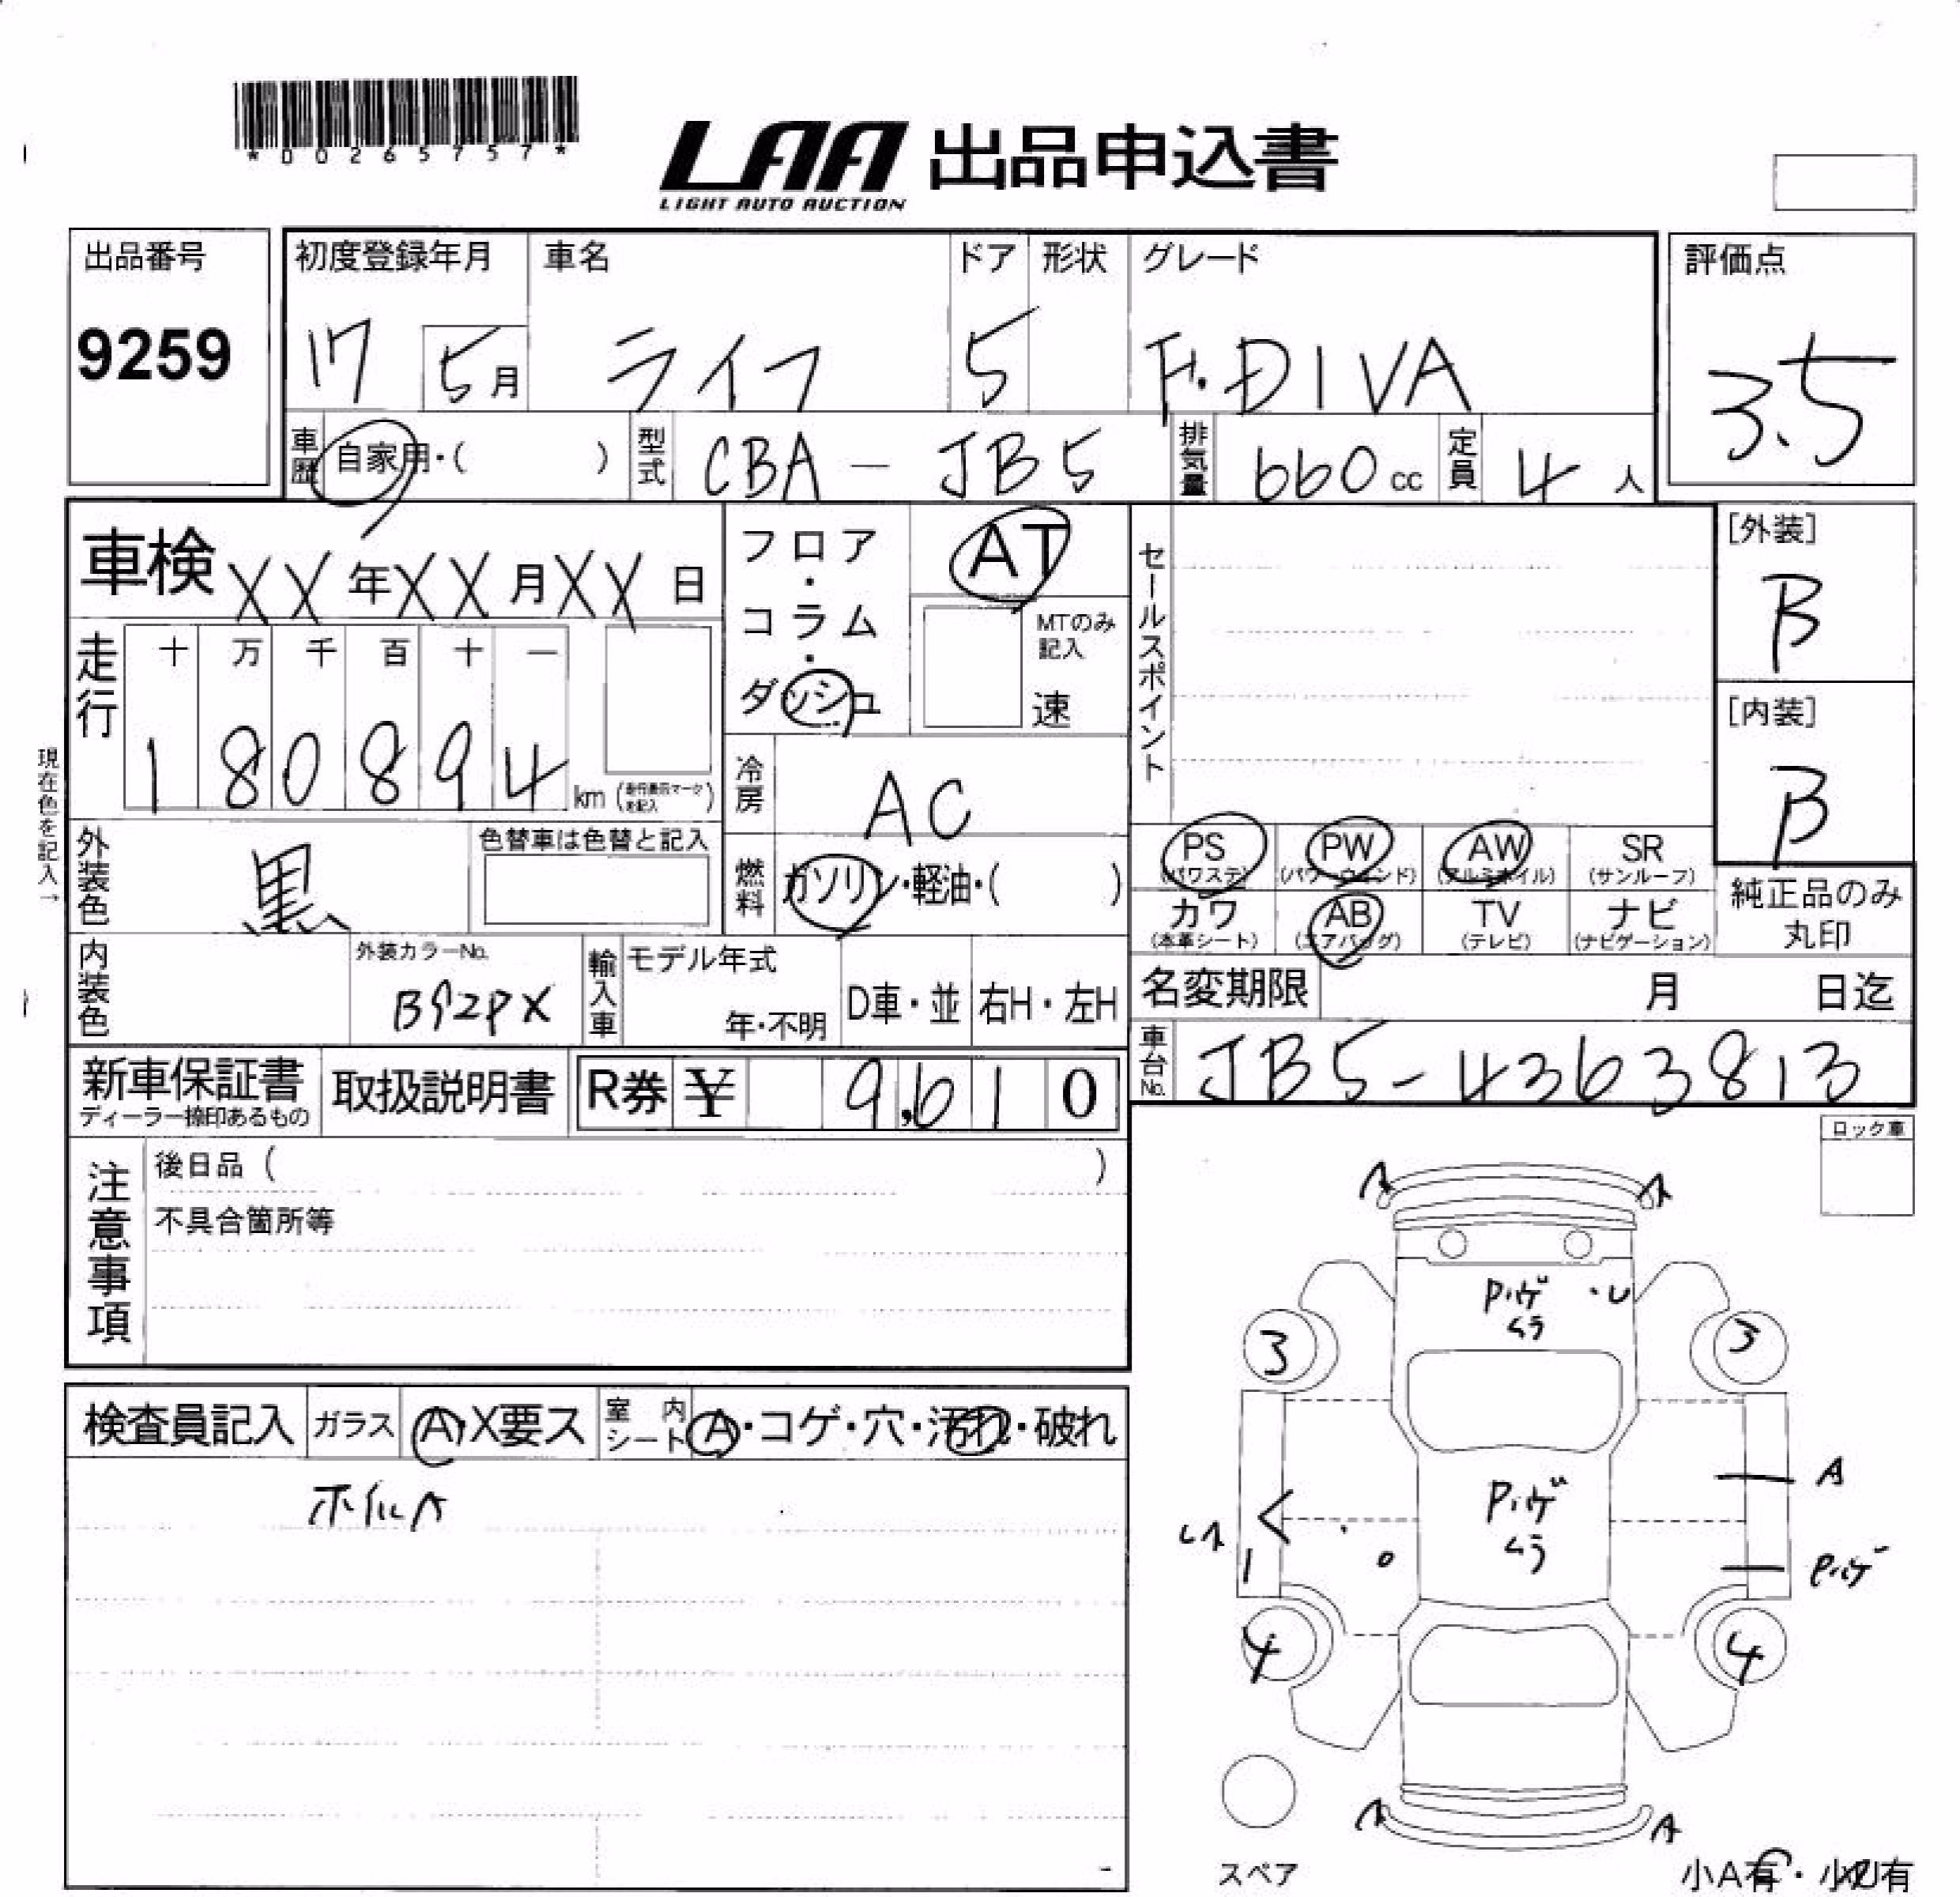 *00265757*
LAA 出品申込書
LIGHT AUTO AUCTION
出品番号
9259
初度登録年月 車名 ドア 形状 グレード
17 5月 ライフ 5 F.DIVA
評価点
3.5
車歴 自家用・( ) 型式 CBA-JB5 排気量 660cc 定員 4人
車検 XX年XX月XX日
フロア・コラム・ダッシュ
AT
MTのみ記入
速
セールスポイント
[外装]
B
[内装]
B
走行 十 万 千 百 十 一
1 8 0 8 9 4 km (走行表示マークを記入)
現在色を記入→
冷房 AC
外装色 黒 色替車は色替と記入
燃料 ガソリン・軽油・( )
PS (パワステ) PW (パワーウィンド) AW (アルミホイル) SR (サンルーフ)
カワ (本革シート) AB (エアバッグ) TV (テレビ) ナビ (ナビゲーション)
純正品のみ丸印
内装色 外装カラーNo. B92PX
輸入車 モデル年式 年・不明 D車・並 右H・左H
名変期限 月 日迄
車台No. JB5-4363813
新車保証書 ディーラー捺印あるもの
取扱説明書
R券 ¥ 9,610
注意事項
後日品 ( )
不具合箇所等
ロック車
A A
Pハゲ ムラ ・U
3 3
Pハゲ ムラ
A
Pハゲ
4 4
A A
スペア
小A有・小U有
検査員記入 ガラス A・X要ス 室内シート A・コゲ・穴・汚れ・破れ
ホイルA